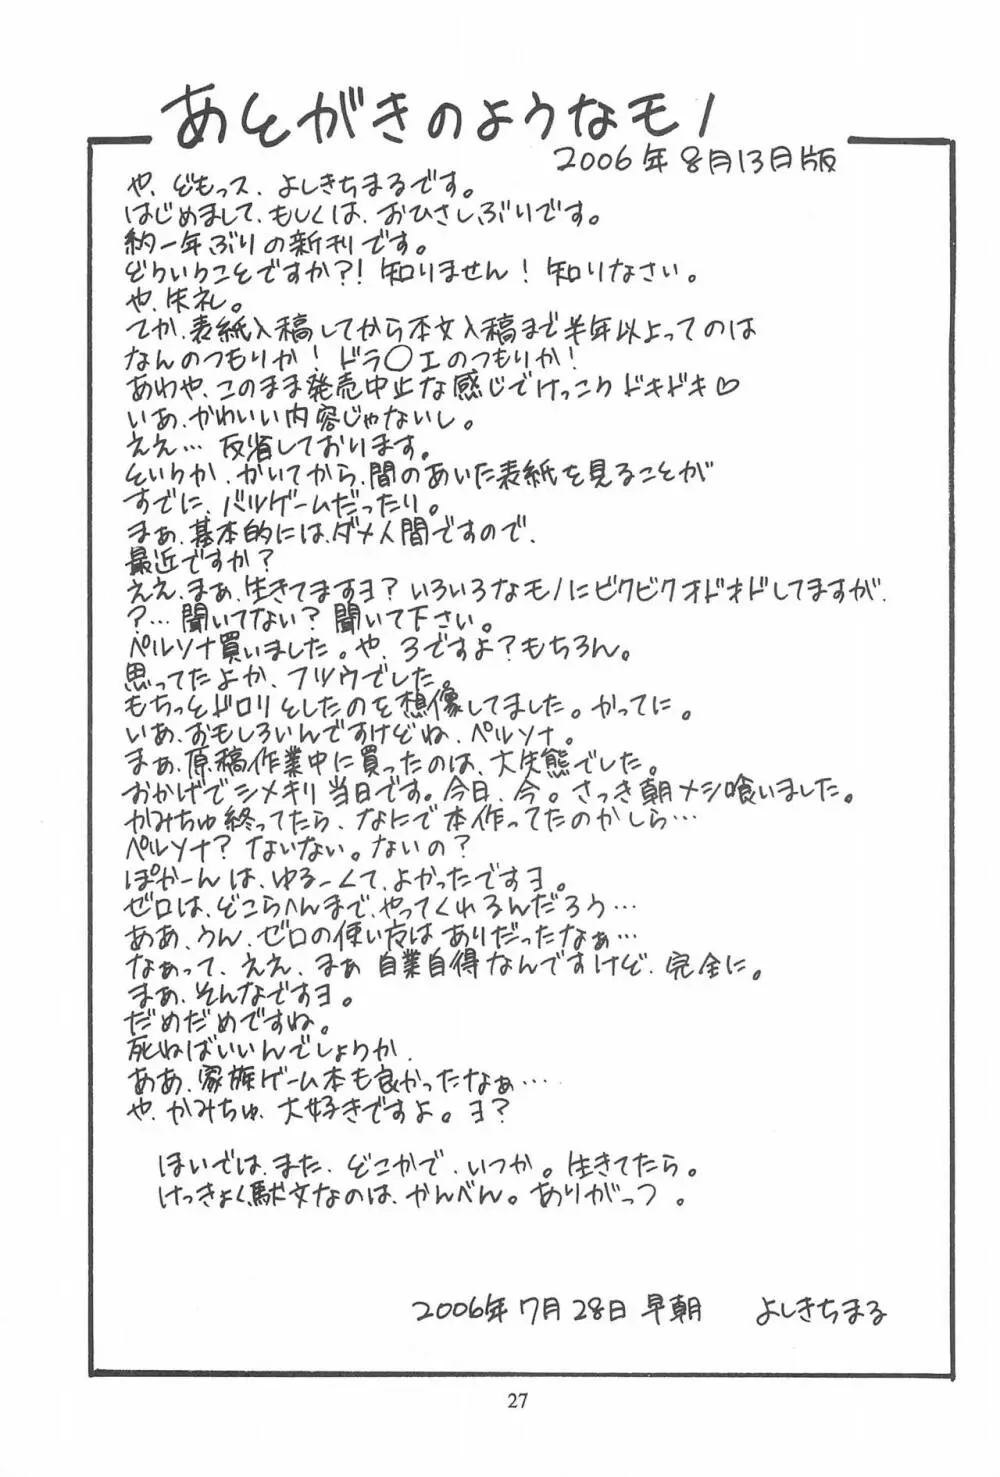 あとがきのようなモノ
2006年8月13日版
や、どもっス、よしきちまるです。
はじめまして、もしくは、おひさしぶりです。
約一年ぶりの新刊です。
どういうことですか?! 知りません! 知りなさい。
や、失礼。
てか、表紙入稿してから本文入稿まで半年以上ってのは
なんのつもりか! ドラ〇エのつもりか!
あわや、このまま発売中止な感じでけっこうドキドキ♡
いあ、かわいい内容じゃないし。
ええ… 反省しております。
というか、かいてから、間のあいた表紙を見ることが
すでに、バツゲームだったり。
まぁ、基本的には、ダメ人間ですので、
最近ですか?
ええ、まぁ、生きてますヨ? いろいろなモノにビクビクオドオドしてますが、
?… 聞いてない? 聞いて下さい。
ペルソナ買いました。や、3ですよ?もちろん。
思ってたよか、フツウでした。
もちっとドロリとしたのを想像してました。かってに。
いあ、おもしろいんですけどね、ペルソナ。
まぁ、原稿作業中に買ったのは、大失態でした。
おかげでシメキリ当日です。今日、今。さっき朝メシ喰いました。
かみちゅ終ってたら、なにで本作ってたのかしら…
ペルソナ? ないない。ないの?
ぽかーんは、ゆるーくて、よかったですヨ。
ゼロは、どこらへんまで、やってくれるんだろう…
ああ、うん、ゼロの使い方はありだったなぁ…
なぁって、ええ、まぁ 自業自得なんですけど、完全に。
まぁ、そんなですヨ。
だめだめですね。
死ねばいいんでしょうか、
ああ、家族ゲーム本も良かったなぁ…
や、かみちゅ、大好きですよ。ヨ?
ほいでは、また、どこかで、いつか。生きてたら。
けっきょく駄文なのは、かんべん。ありがっつ。
2006年7月28日 早朝 よしきちまる
27